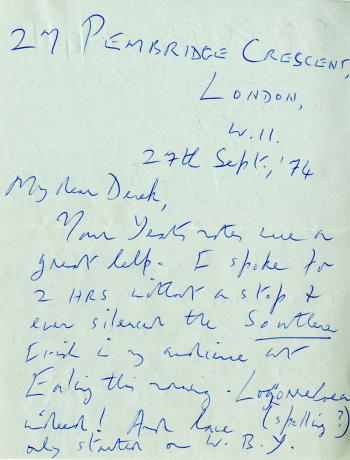 27 PEMBRIDGE CRESCENT,
LONDON,
W.11.
27th Sept., '74
My dear Derek,
Your Yeats notes were a
great help. I spoke for
2 HRS without a stop &
even silenced the Southern
Irish in my audience at
Ealing this morning. Logorrhoea
indeed! And have (spelling?)
only started on W.B.Y.